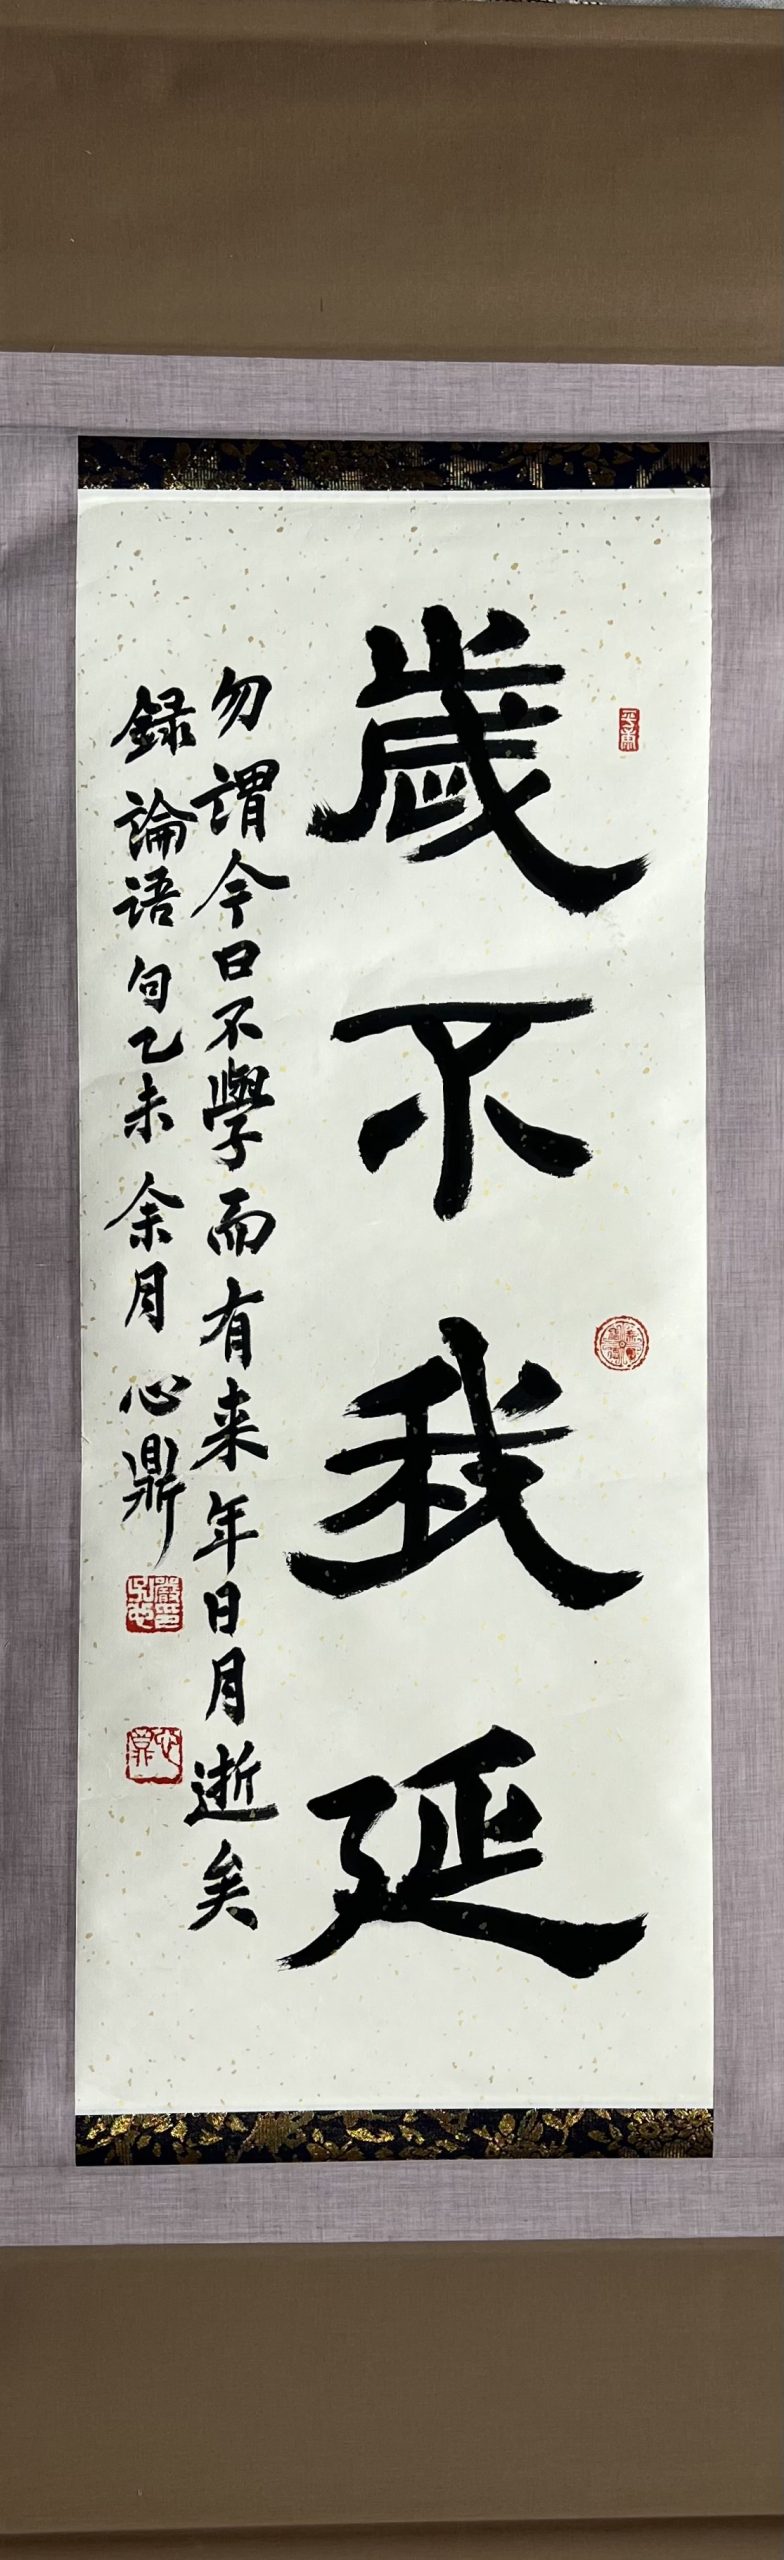 歲不我延
勿謂今日不學而有来年日月逝矣
録論语句乙未余月心鼎